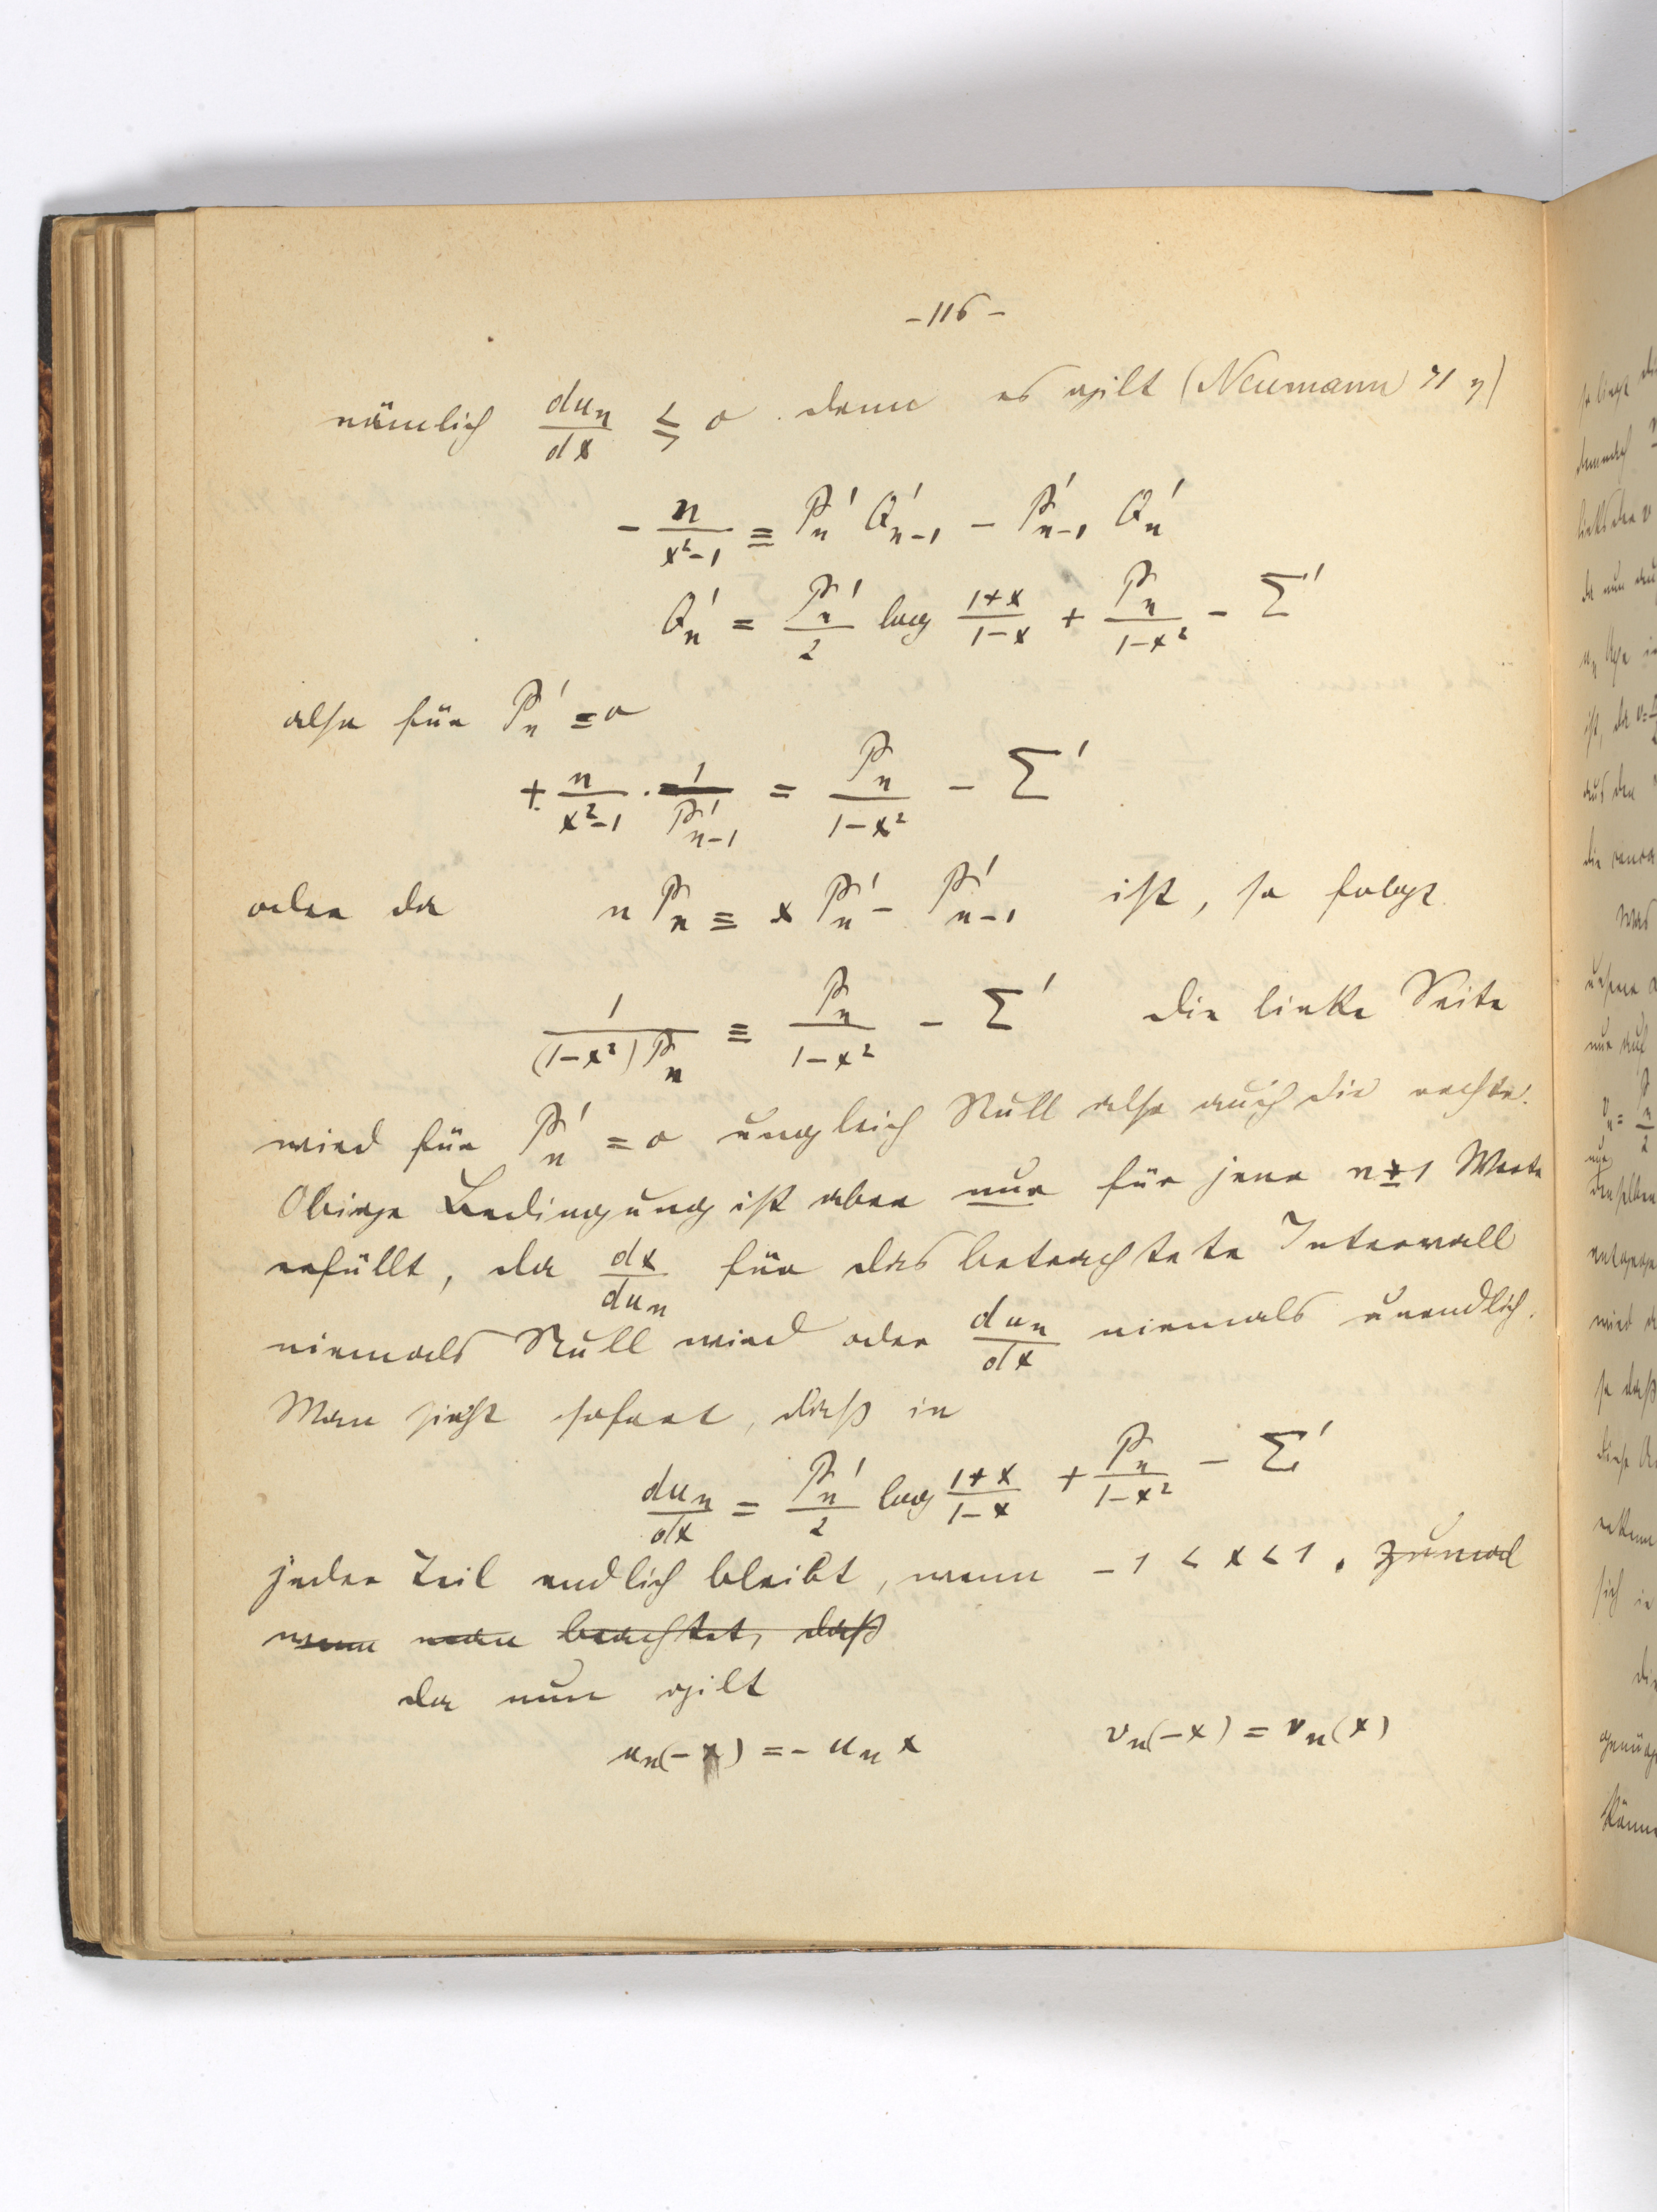 - 116 -
nämlich du_n/dx ≶ 0. denn es gilt (Neumann 71 η)
- n/(x²-1) ≡ P_n' Q'_{n-1} - P'_{n-1} Q_n'
Q_n' = P_n'/2 log (1+x)/(1-x) + P_n/(1-x²) - Σ'
also für P_n' = 0
+ n/(x²-1) · 1/P'_{n-1} = P_n/(1-x²) - Σ'
oder da n P_n ≡ x P_n' - P'_{n-1} ist, so folgt
1/((1-x²) P_n) ≡ P_n/(1-x²) - Σ' die linke Seite
wird für P_n' = 0 ungleich Null also auch die rechte.
Obige Bedingung ist aber nur für jene n ± 1 Werte
erfüllt, da dx/du_n für das betrachtete Intervall
niemals Null wird oder du_n/dx niemals unendlich.
Man sieht sofort, daß in
du_n/dx = P_n'/2 log (1+x)/(1-x) + P_n/(1-x²) - Σ'
jeder Teil endlich bleibt, wenn -1 < x < 1. zumal
wenn man beachtet, daß
da nun gilt
u_n(-x) = - u_n x v_n(-x) = v_n(x)